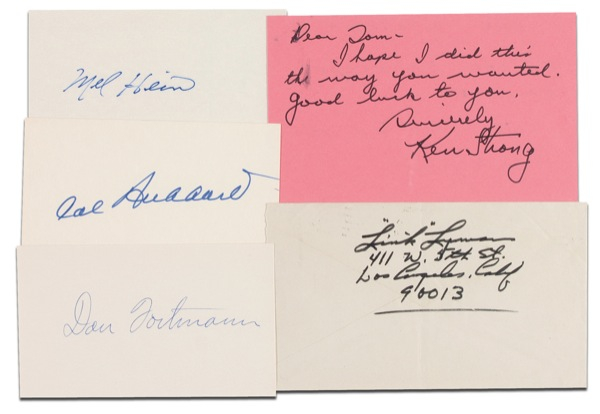 Mel Hein
Cal Hubbard
Dan Fortmann
Dear Tom-
I hope I did this
the way you wanted.
Good luck to you.
Sincerely
Ken Strong
"Link" Lyman
411 W. 5th St.
Los Angeles, Calif
90013